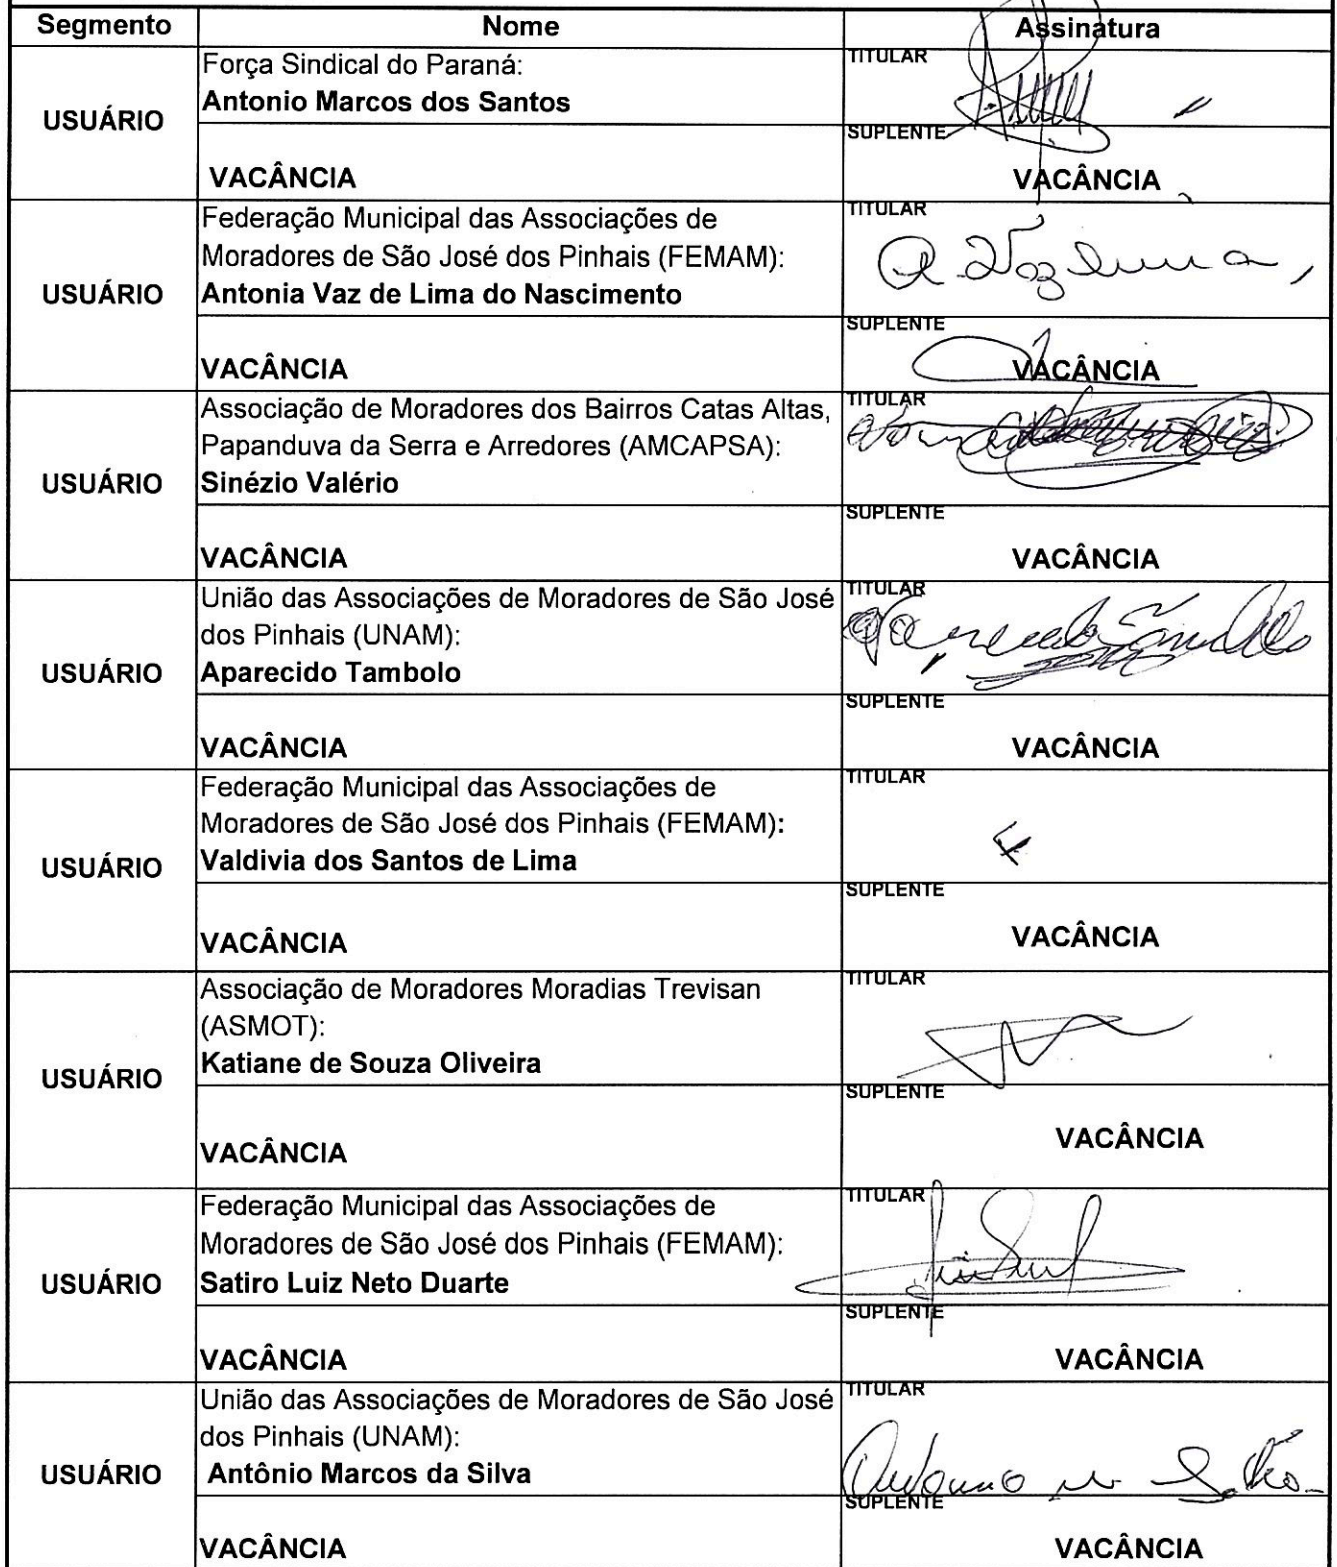 Segmento Nome Assinatura
USUÁRIO
Força Sindical do Paraná:
Antonio Marcos dos Santos
TITULAR
VACÂNCIA
SUPLENTE
VACÂNCIA
USUÁRIO
Federação Municipal das Associações de
Moradores de São José dos Pinhais (FEMAM):
Antonia Vaz de Lima do Nascimento
TITULAR
VACÂNCIA
SUPLENTE
VACÂNCIA
USUÁRIO
Associação de Moradores dos Bairros Catas Altas,
Papanduva da Serra e Arredores (AMCAPSA):
Sinézio Valério
TITULAR
VACÂNCIA
SUPLENTE
VACÂNCIA
USUÁRIO
União das Associações de Moradores de São José
dos Pinhais (UNAM):
Aparecido Tambolo
TITULAR
VACÂNCIA
SUPLENTE
VACÂNCIA
USUÁRIO
Federação Municipal das Associações de
Moradores de São José dos Pinhais (FEMAM):
Valdivia dos Santos de Lima
TITULAR
F
VACÂNCIA
SUPLENTE
VACÂNCIA
USUÁRIO
Associação de Moradores Moradias Trevisan
(ASMOT):
Katiane de Souza Oliveira
TITULAR
VACÂNCIA
SUPLENTE
VACÂNCIA
USUÁRIO
Federação Municipal das Associações de
Moradores de São José dos Pinhais (FEMAM):
Satiro Luiz Neto Duarte
TITULAR
VACÂNCIA
SUPLENTE
VACÂNCIA
USUÁRIO
União das Associações de Moradores de São José
dos Pinhais (UNAM):
Antônio Marcos da Silva
TITULAR
VACÂNCIA
SUPLENTE
VACÂNCIA